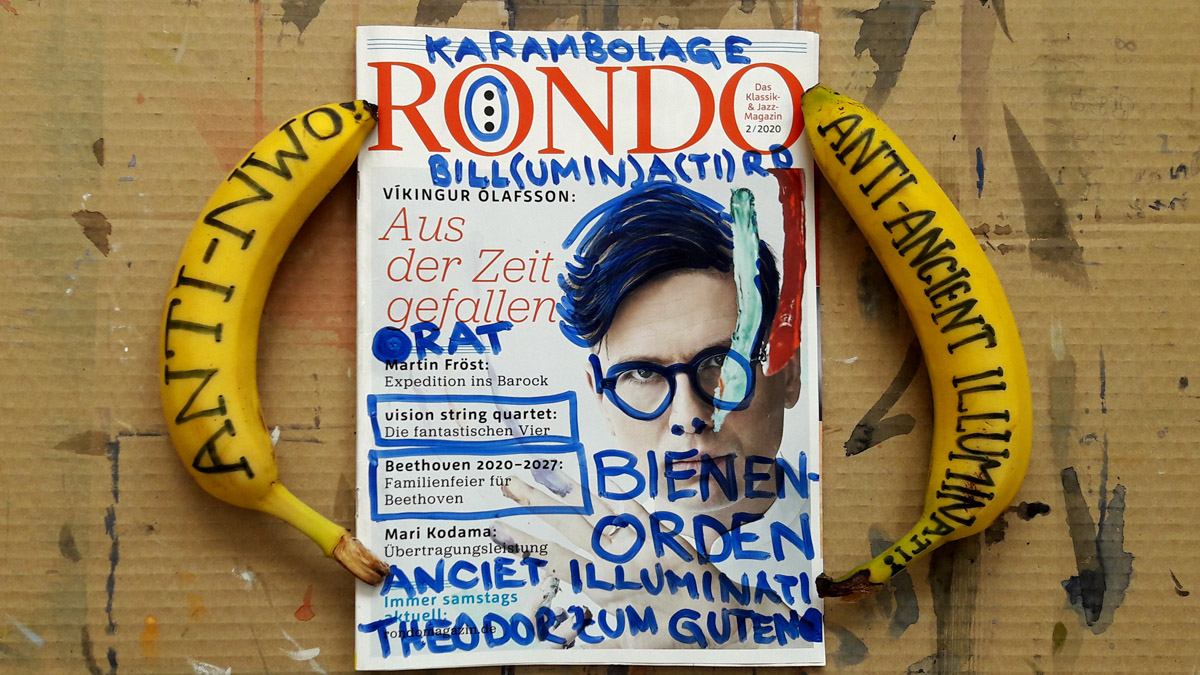 ANTI-NWO
KARAMBOLAGE
RONDO
Das
Klassik-
& Jazz-
Magazin
2/2020
BILL(UMIN)A(TI)RD
VÍKINGUR ÓLAFSSON:
Aus
der Zeit
gefallen
ORAT
Martin Fröst:
Expedition ins Barock
vision string quartet:
Die fantastischen Vier
Beethoven 2020–2027:
Familienfeier für
Beethoven
Mari Kodama:
Übertragungsleistung
BIENEN-
ORDEN
ANCIET ILLUMINATI
Immer samstags
aktuell:
rondomagazin.de
THEODOR ZUM GUTEN
ANTI-ANCIENT ILLUMINATI!